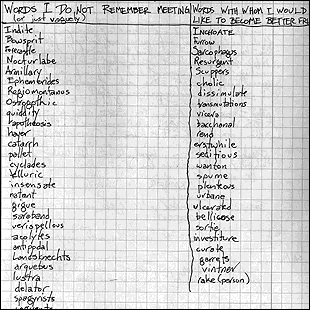 Words I Do Not Remember Meeting
(or just vaguely)
Indite
Bowsprit
Forecastle
Nocturlabe
Armillary
Ephemerides
Regiomontanus
Ostrogothic
quiddity
hayer
catarrh
pallet
cyclades
telluric
insensate
natant
gigue
saraband
verispellous
acolytes
antipodal
Landsknechts
arquebus
lustra
delator
spagyrists
Words with whom I would
like to become better fri
Inchoate
Furrow
Sarcophagus
Resurgent
Scuppers
choleic
dissimulate
transmutations
vicera
bacchanal
rend
erstwhile
seditious
wanton
spume
plenteous
urbane
ulcerated
bellicose
sortie
investiture
curate
garrets
vintner
rake (person)